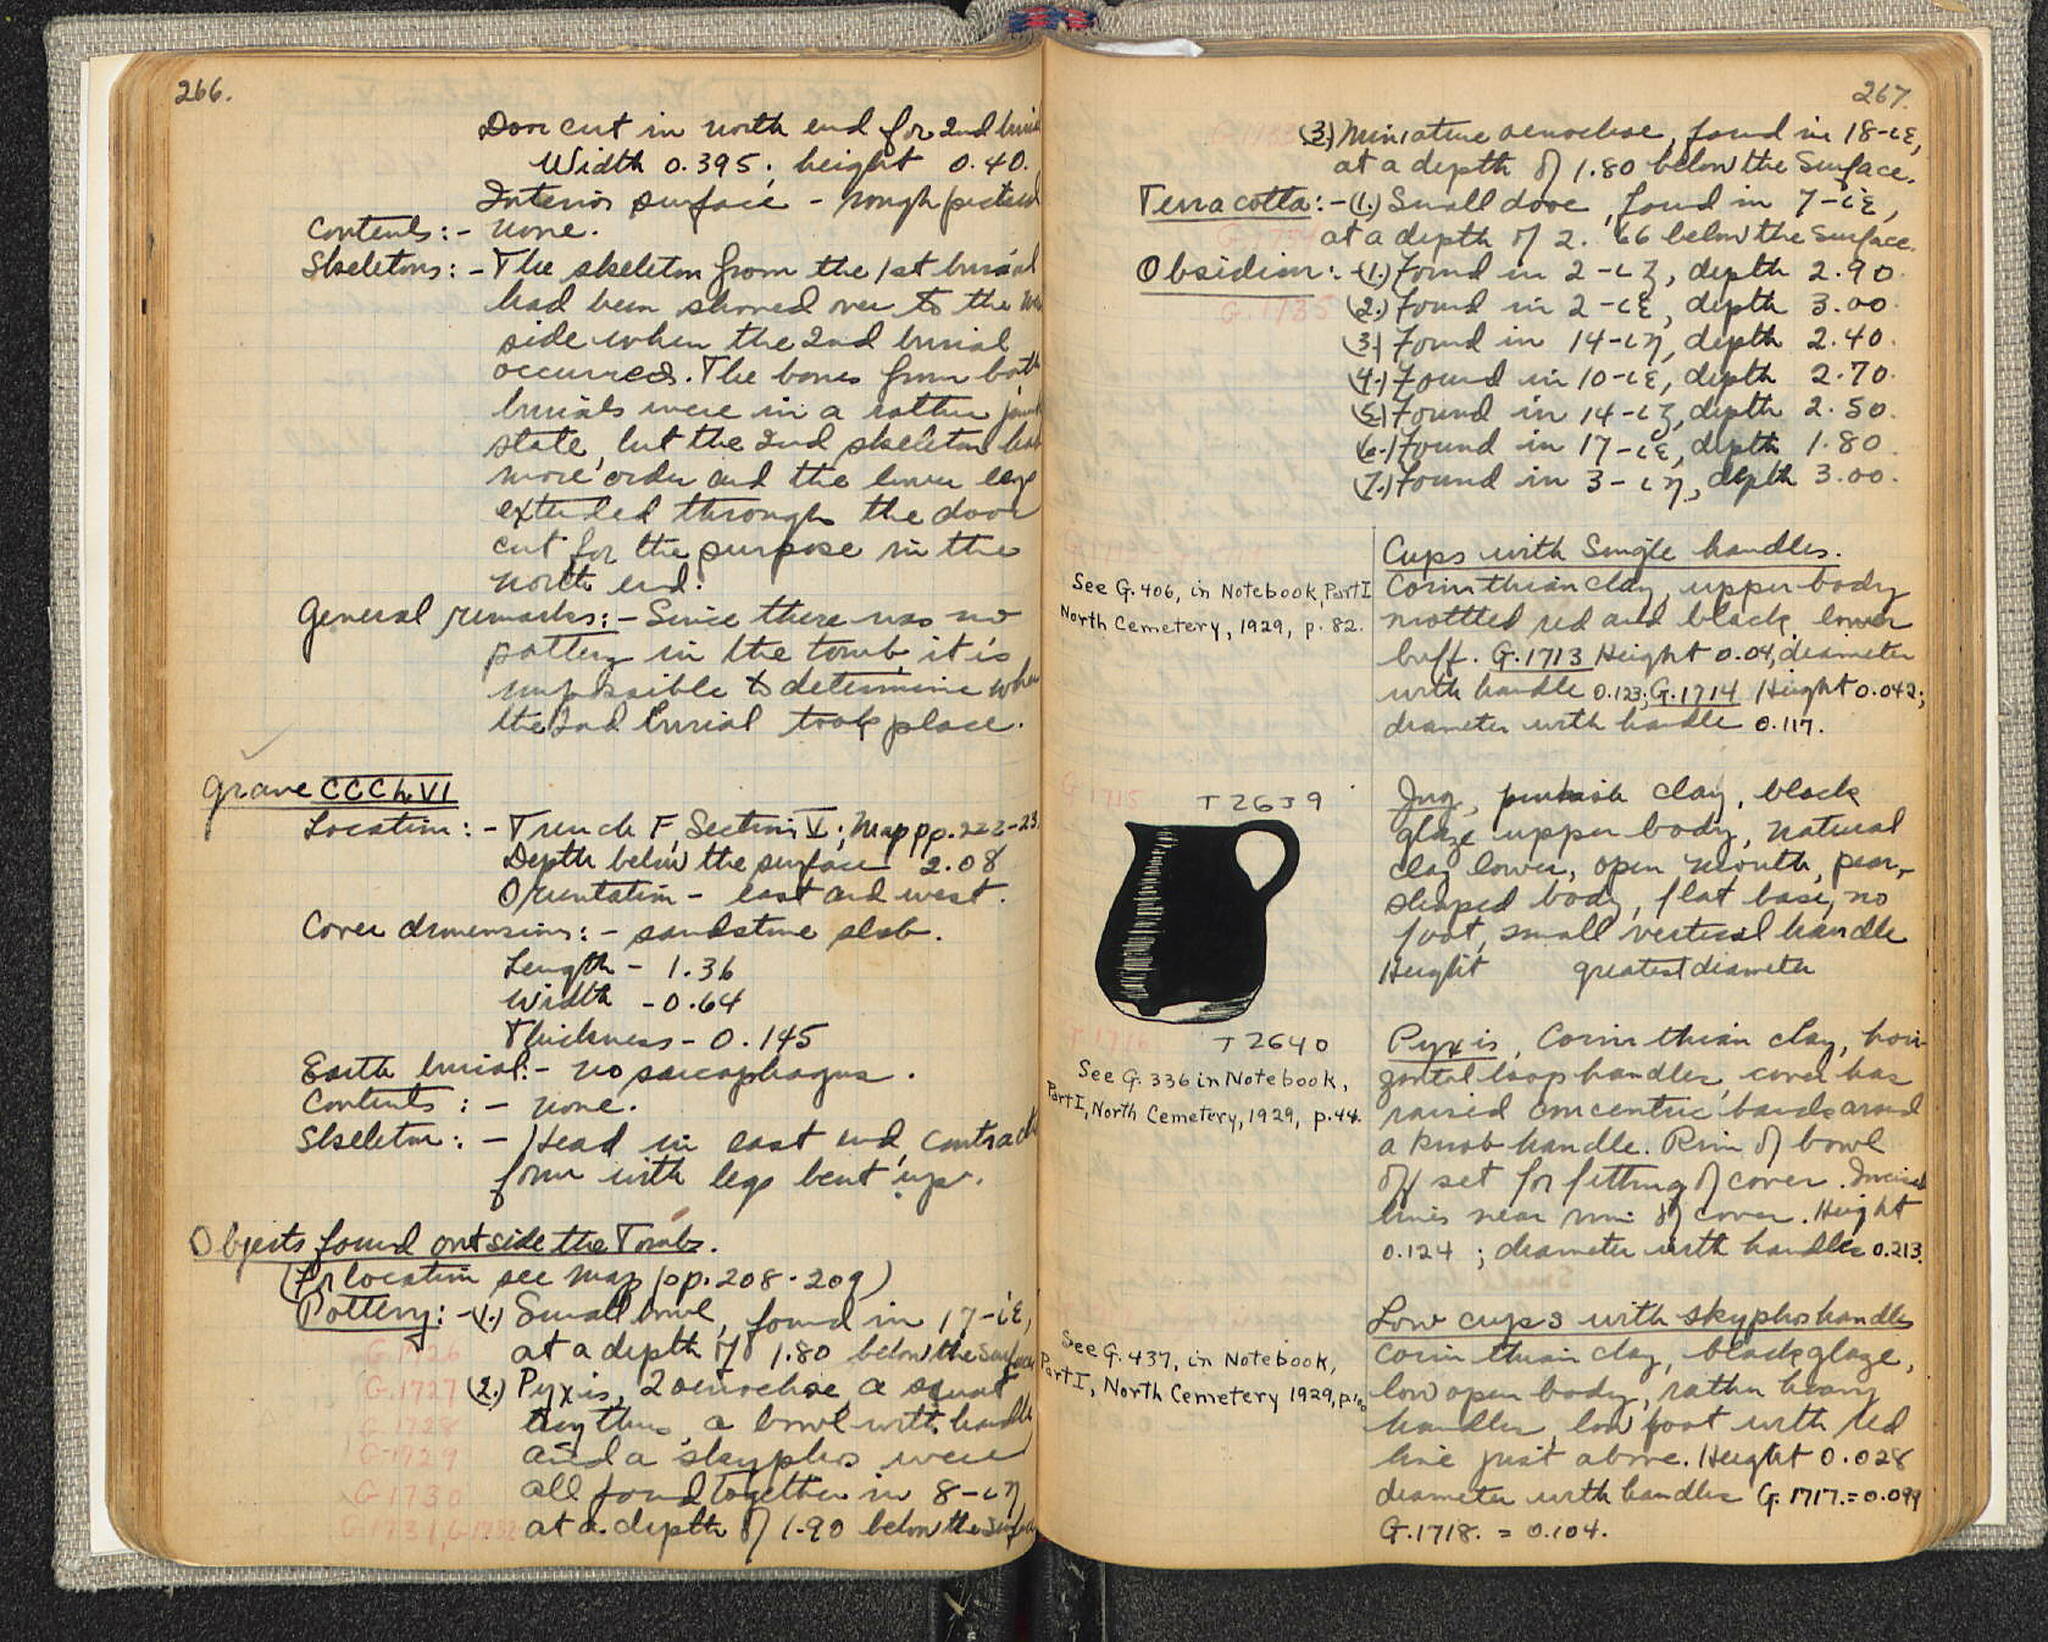 266.
Door cut in north end for 2nd burial
Width 0.395; height 0.40.
Interior surface - rough picked
Contents:- none.
Skeletons:- The skeleton from the 1st burial
had been shoved over to the
side when the 2nd burial
occurred. The bones from both
burials were in a rather
state, but the 2nd skeleton had
more order and the lower legs
extended through the door
cut for the purpose in the
north end.
General remarks:- Since there was no
pottery in the tomb, it is
impossible to determine when
the 2nd burial took place.
Grave CCCLVI
Location:- Trench F, Section V; Map pp. 222-23
Depth below the surface 2.08
Orientation - east and west.
Cover dimensions:- sandstone slab.
Length - 1.36
Width - 0.64
Thickness - 0.145
Earth burial:- no sarcophagus.
Contents:- none.
Skeleton:- Head in east end, contracted
form with legs bent up.
Objects found outside the Tombs.
(For location see map pp. 208-209)
Pottery:-(1.) Small bowl, found in 17-ιε,
at a depth of 1.80 below the surface
G.1726
G.1727 (2.) Pyxis, 2 oenochoe, a squat
lekythus, a bowl with handle
G.1728
and a skyphos were
G.1729
all found together in 8-ιη
G.1730
G.1731, G.1732 at a depth of 1.90 below the surface
267.
(3.) Miniature oenochoe, found in 18-ιε,
at a depth of 1.80 below the surface.
Terracotta:-(1.) Small dove, found in 7-ιε,
G.1734 at a depth of 2.66 below the surface.
Obsidian:-(1.) Found in 2-ιζ, depth 2.90.
G.1735 (2.) Found in 2-ιε, depth 3.00.
(3.) Found in 14-ιη, depth 2.40.
(4.) Found in 10-ιε, depth 2.70.
(5.) Found in 14-ιζ, depth 2.50.
(6.) Found in 17-ιε, depth 1.80.
(7.) Found in 3-ιη, depth 3.00.
Cups with Single handles.
See G. 406, in Notebook, Part I
North Cemetery, 1929, p. 82.
Corinthian clay, upper body
mottled red and black, lower
buff. G.1713 Height 0.04, diameter
with handle 0.123; G.1714 Height 0.042;
diameter with handle 0.117.
G 1715 T 2639
Jug, pinkish clay, black
glaze upper body, natural
clay lower, open mouth, pear-
shaped body, flat base, no
foot, small vertical handle
Height greatest diameter
G 1716 T 2640
See G. 336 in Notebook,
Part I, North Cemetery, 1929, p. 44.
Pyxis, Corinthian clay, hori-
zontal loop handles, cover has
raised concentric bands around
a knob handle. Rim of bowl
off set for fitting of cover. Incised
lines near rim of cover. Height
0.124 ; diameter with handles 0.213.
Low cups with skyphos handles
See G. 437, in Notebook,
Part I, North Cemetery 1929,
Corinthian clay, black glaze,
low open body, rather heavy
handles, low foot with red
line just above. Height 0.028
diameter with handles G. 1717. = 0.099
G.1718. = 0.104.